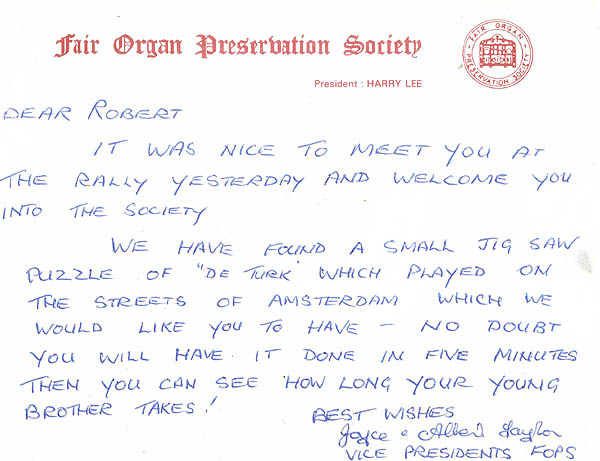 Fair Organ Preservation Society
FAIR ORGAN PRESERVATION SOCIETY
President : HARRY LEE
DEAR ROBERT
IT WAS NICE TO MEET YOU AT
THE RALLY YESTERDAY AND WELCOME YOU
INTO THE SOCIETY
WE HAVE FOUND A SMALL JIG SAW
PUZZLE OF "DE TURK" WHICH PLAYED ON
THE STREETS OF AMSTERDAM WHICH WE
WOULD LIKE YOU TO HAVE - NO DOUBT
YOU WILL HAVE IT DONE IN FIVE MINUTES
THEN YOU CAN SEE HOW LONG YOUR YOUNG
BROTHER TAKES!
BEST WISHES
Joyce & Albert Taylor
VICE PRESIDENTS FOPS